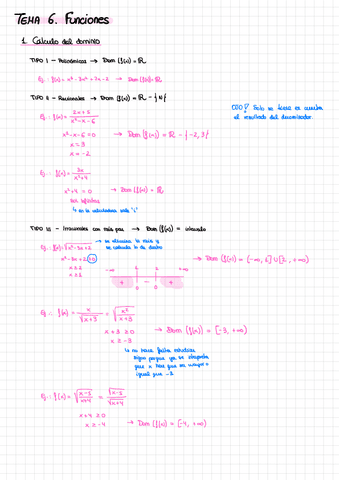 TEMA 6. Funciones
1. Calculo del dominio
TIPO I - Polinómicas → Dom (f(x)) = ℝ
Ej.: f(x) = x³ - 3x² + 7x - 2 → Dom (f(x)) = ℝ
TIPO II - Racionales → Dom (f(x)) = ℝ - {x}
OJO! Solo se tiene en cuenta
el resultado del denominador.
Ej.: f(x) = 2x + 5 / x² - x - 6
x² - x - 6 = 0 → Dom (f(x)) = ℝ - {-2, 3}
x = 3
x = -2
Ej.: f(x) = 3x / x² + 4
x² + 4 = 0 → Dom (f(x)) = ℝ
↳ en la calculadora sale "i"
TIPO III - Irracionales con raíz par → Dom (f(x)) = intervalo
Ej.: f(x) = √x² - 3x + 2 → se elimina la raíz y
se calcula lo de dentro
x² - 3x + 2 ≥ 0
-∞ +∞
+ - +
Ej.: f(x) = x / √x + 3
x + 3 ≥ 0 → Dom (f(x)) = [-3, +∞)
x ≥ -3
↳ no hace falta estudiar
signo porque ya se
que x tiene que ser mayor o
igual que -3.
Ej.: f(x) = √x - 5 / x + 4 = √x - 5 / √x + 4
x + 4 ≥ 0
x ≥ -4 → Dom (f(x)) = [-4, +∞)